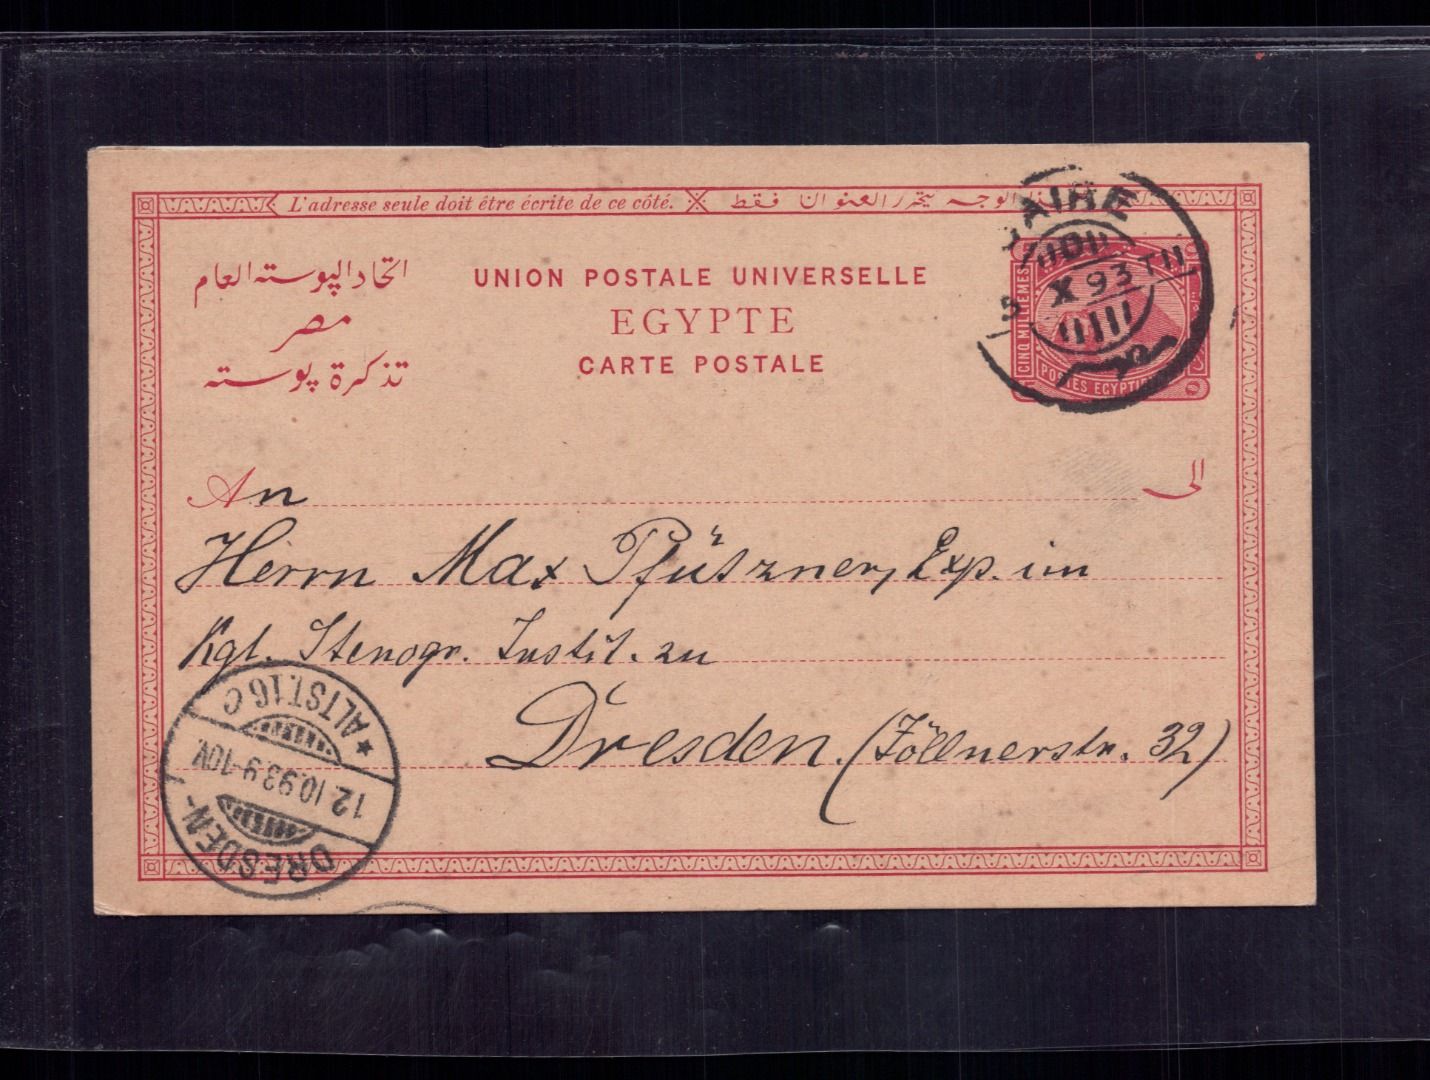 L'adresse seule doit être écrite de ce côté.
الوجه يتحرر العنوان فقط
اتحاد البوسته العام
مصر
تذكرة بوسته
UNION POSTALE UNIVERSELLE
EGYPTE
CARTE POSTALE
CAIRE
5 X 93 T II
CINQ MILLIEMES
POSTES EGYPTIE
An
الى
Herrn Max Pfützner, Exp. im
Kgl. Stenogr. Instit. zu
Dresden. (Zöllnerstr. 32)
DRESDEN-
12.10.93.9-10V.
★ ALTST.16 C